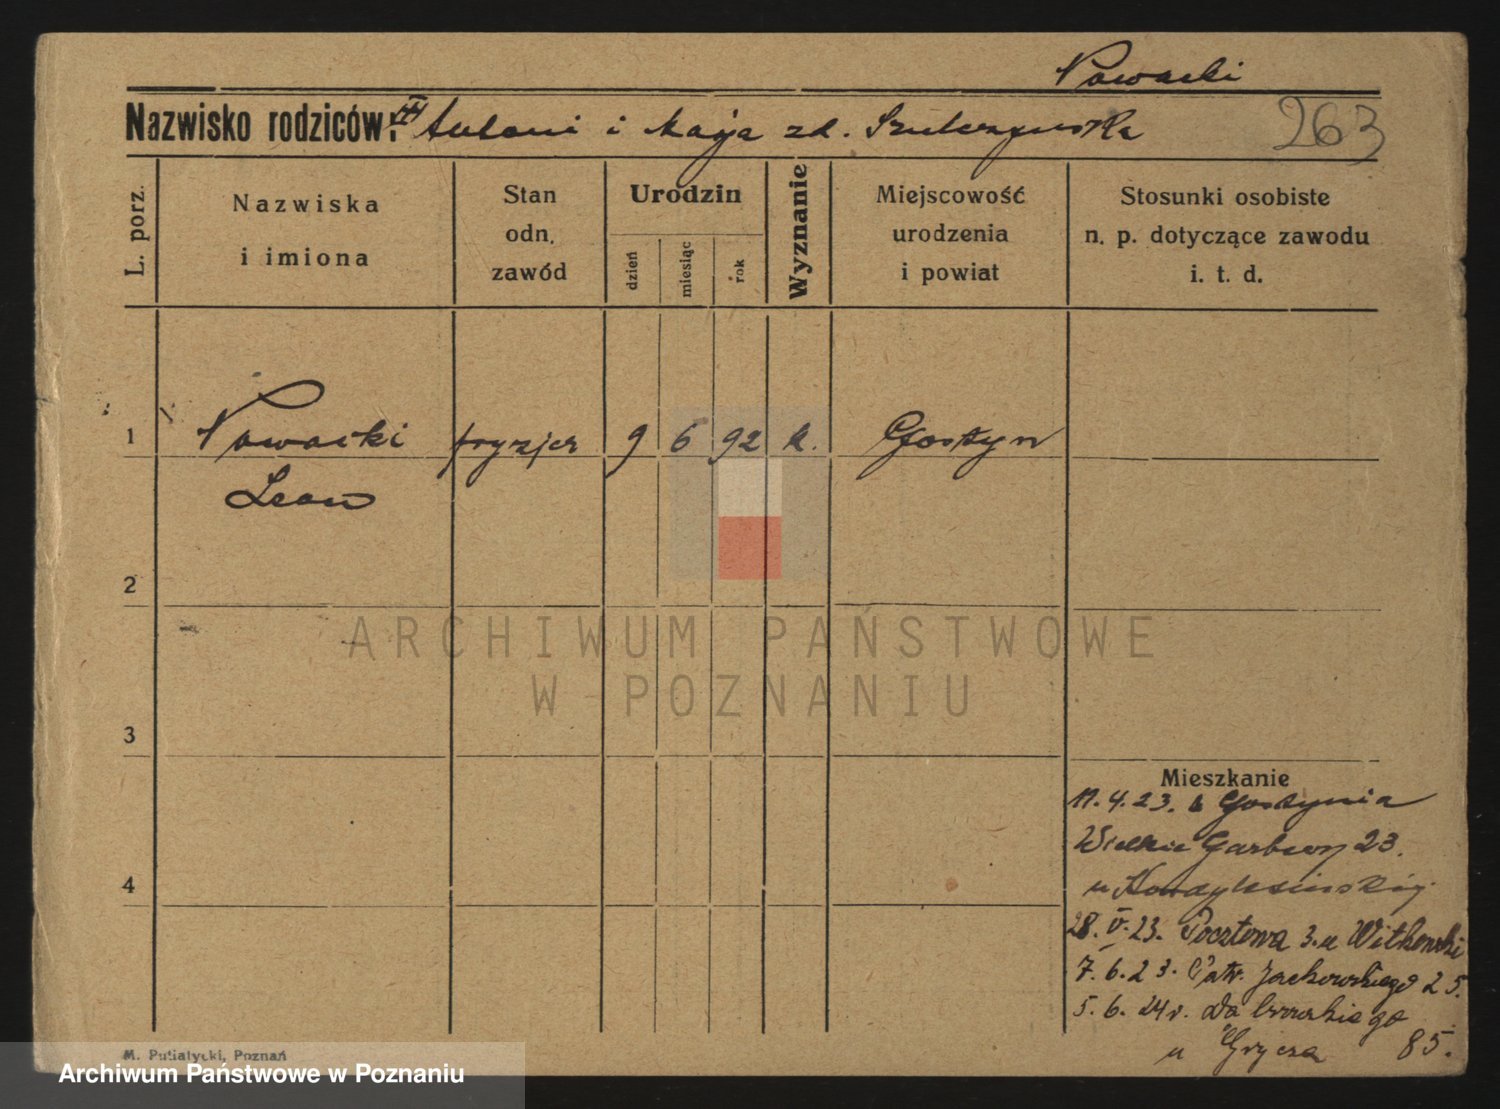 Nowacki
Nazwisko rodziców: Antoni i Maja zd. Szulczewska
263
L. porz.
Nazwiska
i imiona
Stan
odn.
zawód
Urodzin
dzień
miesiąc
rok
Wyznanie
Miejscowość
urodzenia
i powiat
Stosunki osobiste
n. p. dotyczące zawodu
i. t. d.
1 Nowacki fryzjer 9 6 92 k. Gostyn
Leon
2
3
4
ARCHIWUM PAŃSTWOWE
W POZNANIU
Mieszkanie
11.4.23. z Gostynia
Wielkie Garbary 23.
u
28.V.23. Pocztowa 3. u Witkowski
7.6.23. Patr. Jackowskiego 25.
5.6.24 r. Da
u Grycza 85.
M. Putiatycki, Poznań
Archiwum Państwowe w Poznaniu